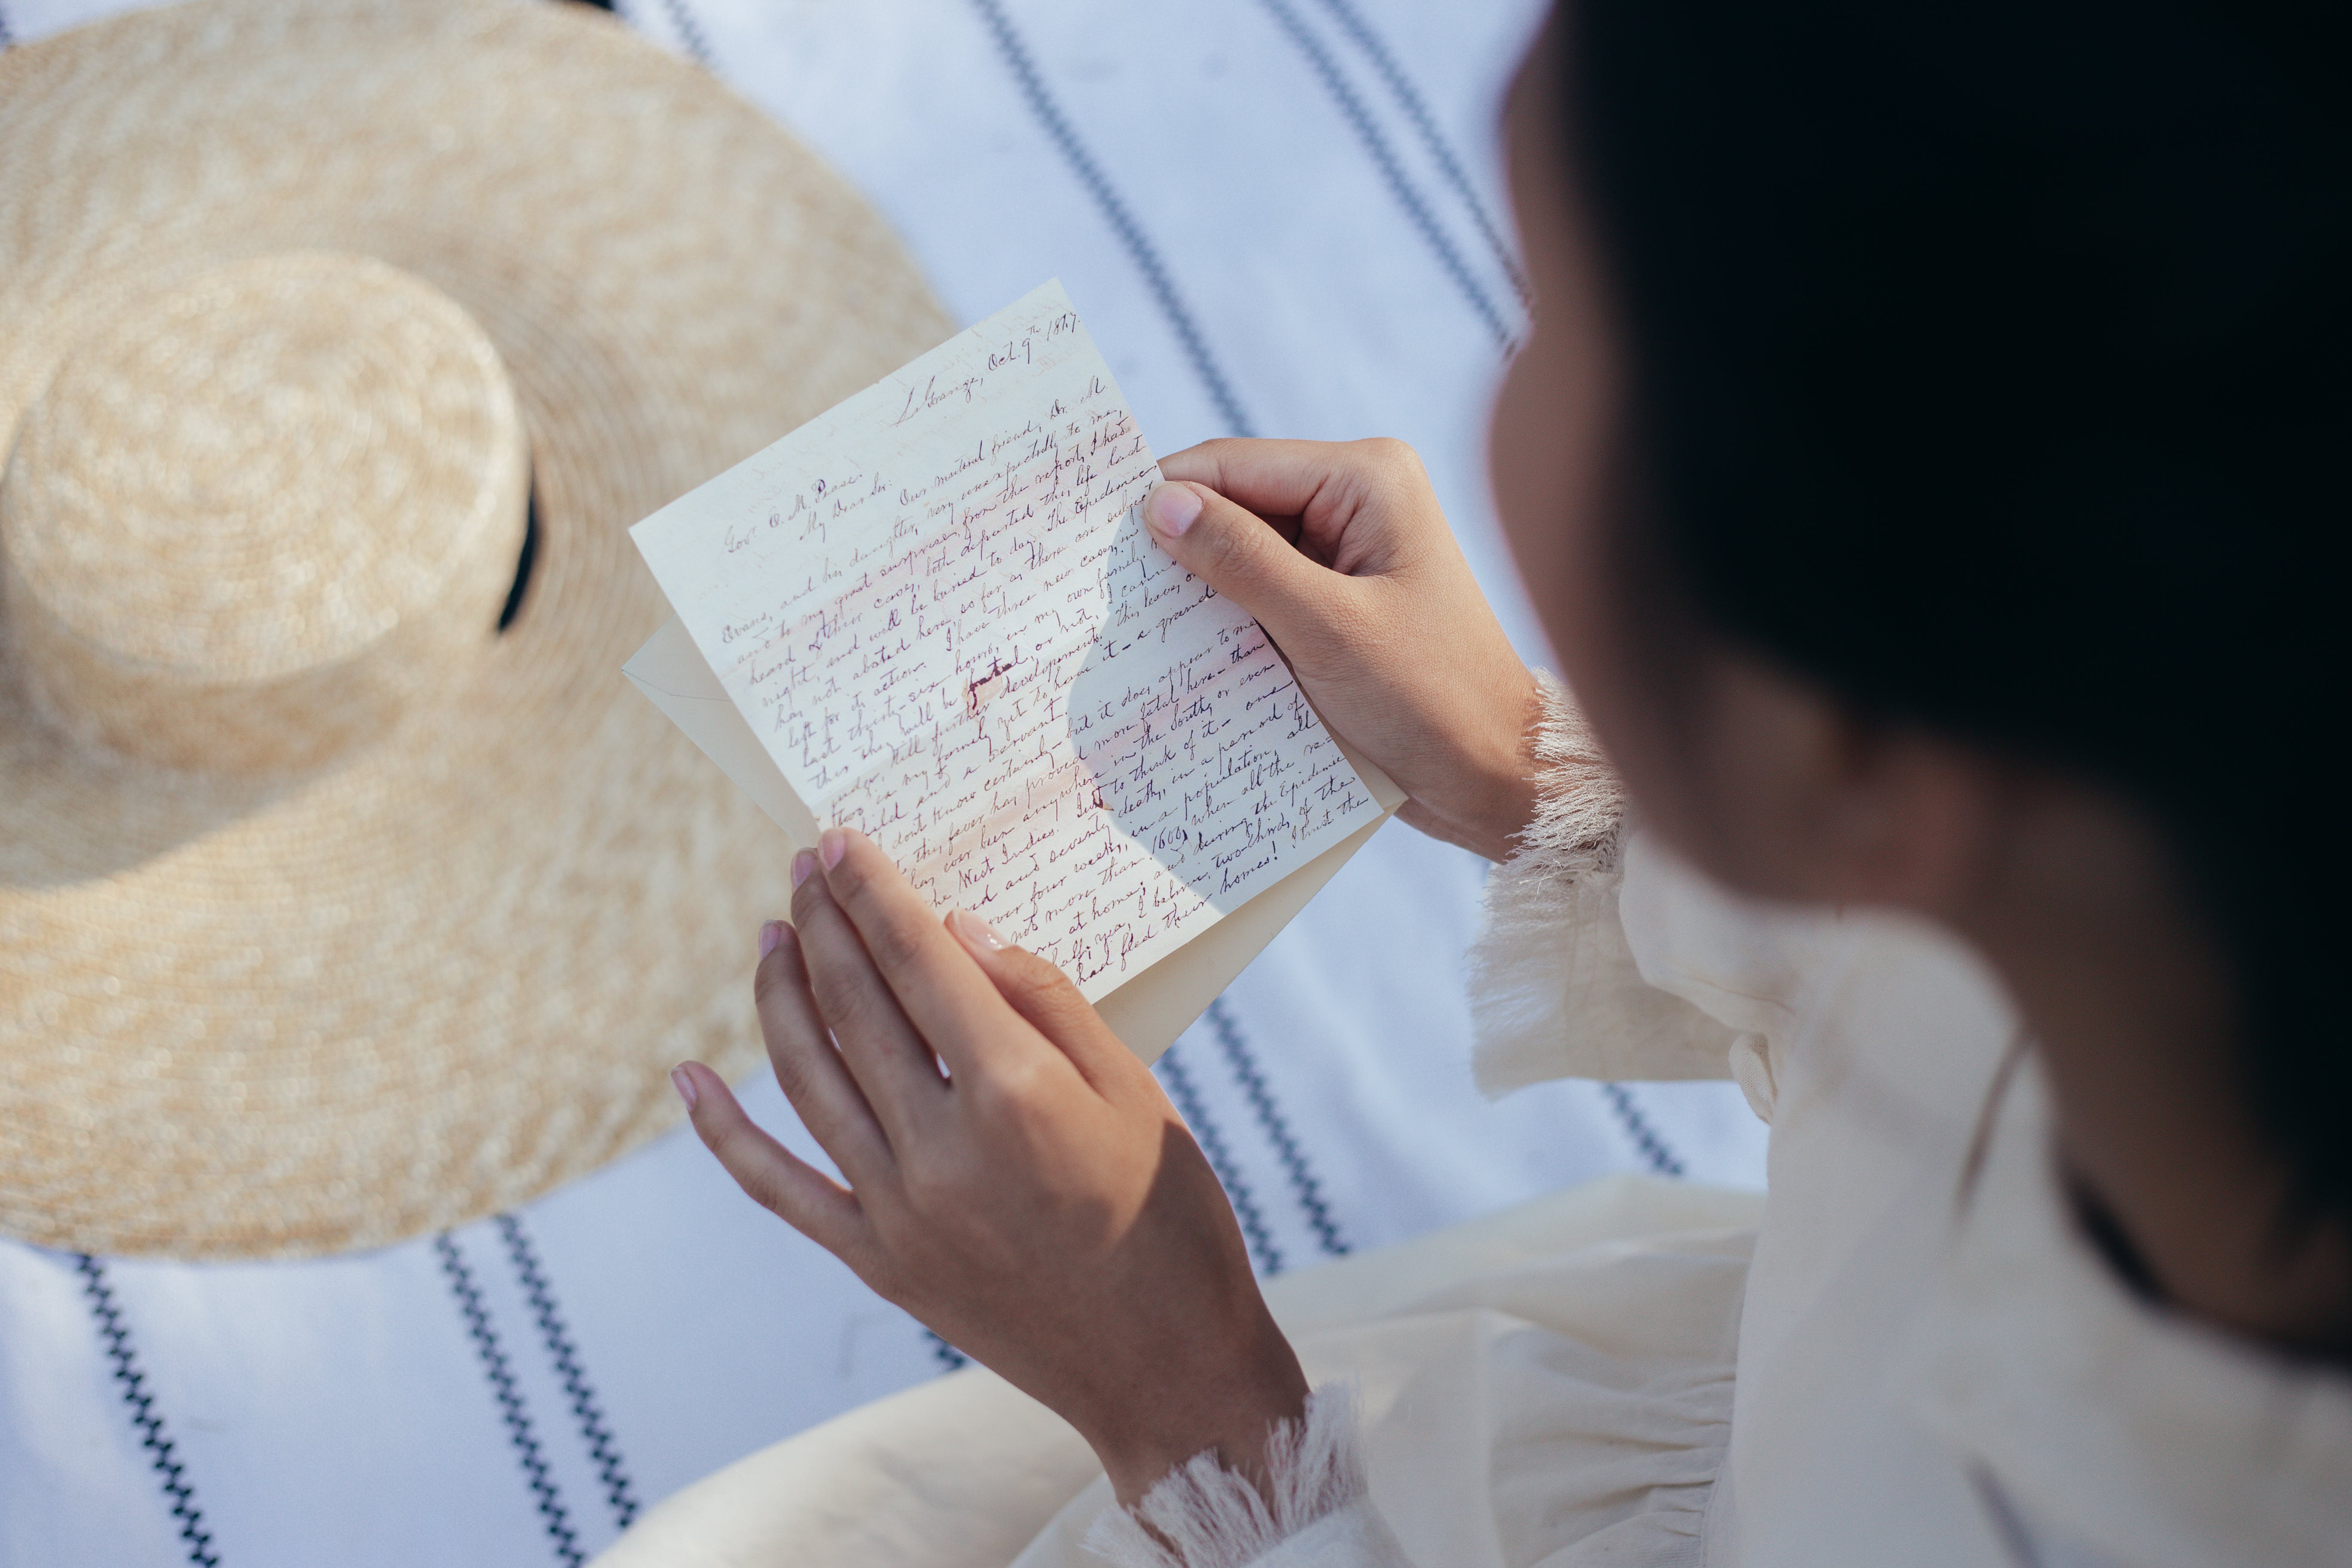 LaGrange, Oct. 9th 1867.
Gov. E. M. Pease.
My Dear Sir: Our mutual friend, Dr. M
Evans, and his daughter, very unexpectedly to me,
and to my great surprise, from the report, I had
heard of their cases, both departed this life last
night, and will be buried to day. The Epidemic
has not abated here, so far as there are subject
left for its action. I have three new cases, in
last thirty-six hours, in my own family.
this they will be fatal, or not, I cannot
judge, till further developements. This leaves
two in my family yet to have it - a grand
child and a servant.
I dont know certainly - but it does appear to me
this fever has proved more fatal here - than
has ever been anywhere in the South, or even
the West Indies. Just to think of it - one
and seventy death, in a period of
over four weeks, in a population, all
not more than 1600 when all the
at home; and during the Epidemic
half; yea, I believe, two-thirds of the
had fled their homes! I trust the